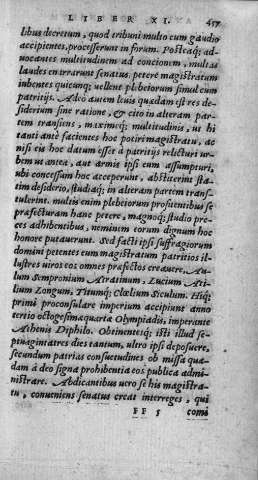 LIBER XI. 457
libus decretum, quod tribuni multo cum gaudio
accipientes, processerunt in forum. Posteaq; ad-
uocantes multitudinem ad concionem, multas
laudes enarrarunt senatus. petere magistratum
iubentes quicunq; uellent plebeiorum simul cum
patritijs. Adeò autem leuis quædam est res de-
siderium sine ratione, & citò in alteram par-
tem transiens, maximeq; multitudinis, ut hi
tanti antè facientes hoc potiri magistratu, ac
nisi eis hoc datum esset à patritijs relicturi ur-
bem ut antea, aut armis ipsi eum assumpturi,
ubi concessum hoc acceperunt, abstiterint sta-
tim desiderio, studiaq; in alteram partem trans-
tulerint. multis enim plebeiorum profitentibus se
præfecturam hanc petere, magnoq; studio pre-
ces adhibentibus, neminem eorum dignum hoc
honore putauerunt. Sed facti ipsi suffragiorum
domini petentes eum magistratum patritios il-
lustres uiros eos omnes præfectos creauere. Au-
lum Sempronium Atratinum, Lucium Atti-
lium Longum, Titumq; Clœlium Siculum. Hiq;
primi proconsulare imperium accipiunt anno
tertio octogesimæquarta Olympiadis, imperante
Athenis Diphilo. Obtinentesq; isti illud se-
ptuaginta tres dies tantum, ultro ipsi deposuere,
secundum patrias consuetudines ob missa quæ-
dam à deo signa prohibentia eos publica admi-
nistrare. Abdicantibus uero se his magistra-
tu, conueniens senatus creat interreges, qui
FF 5 comi